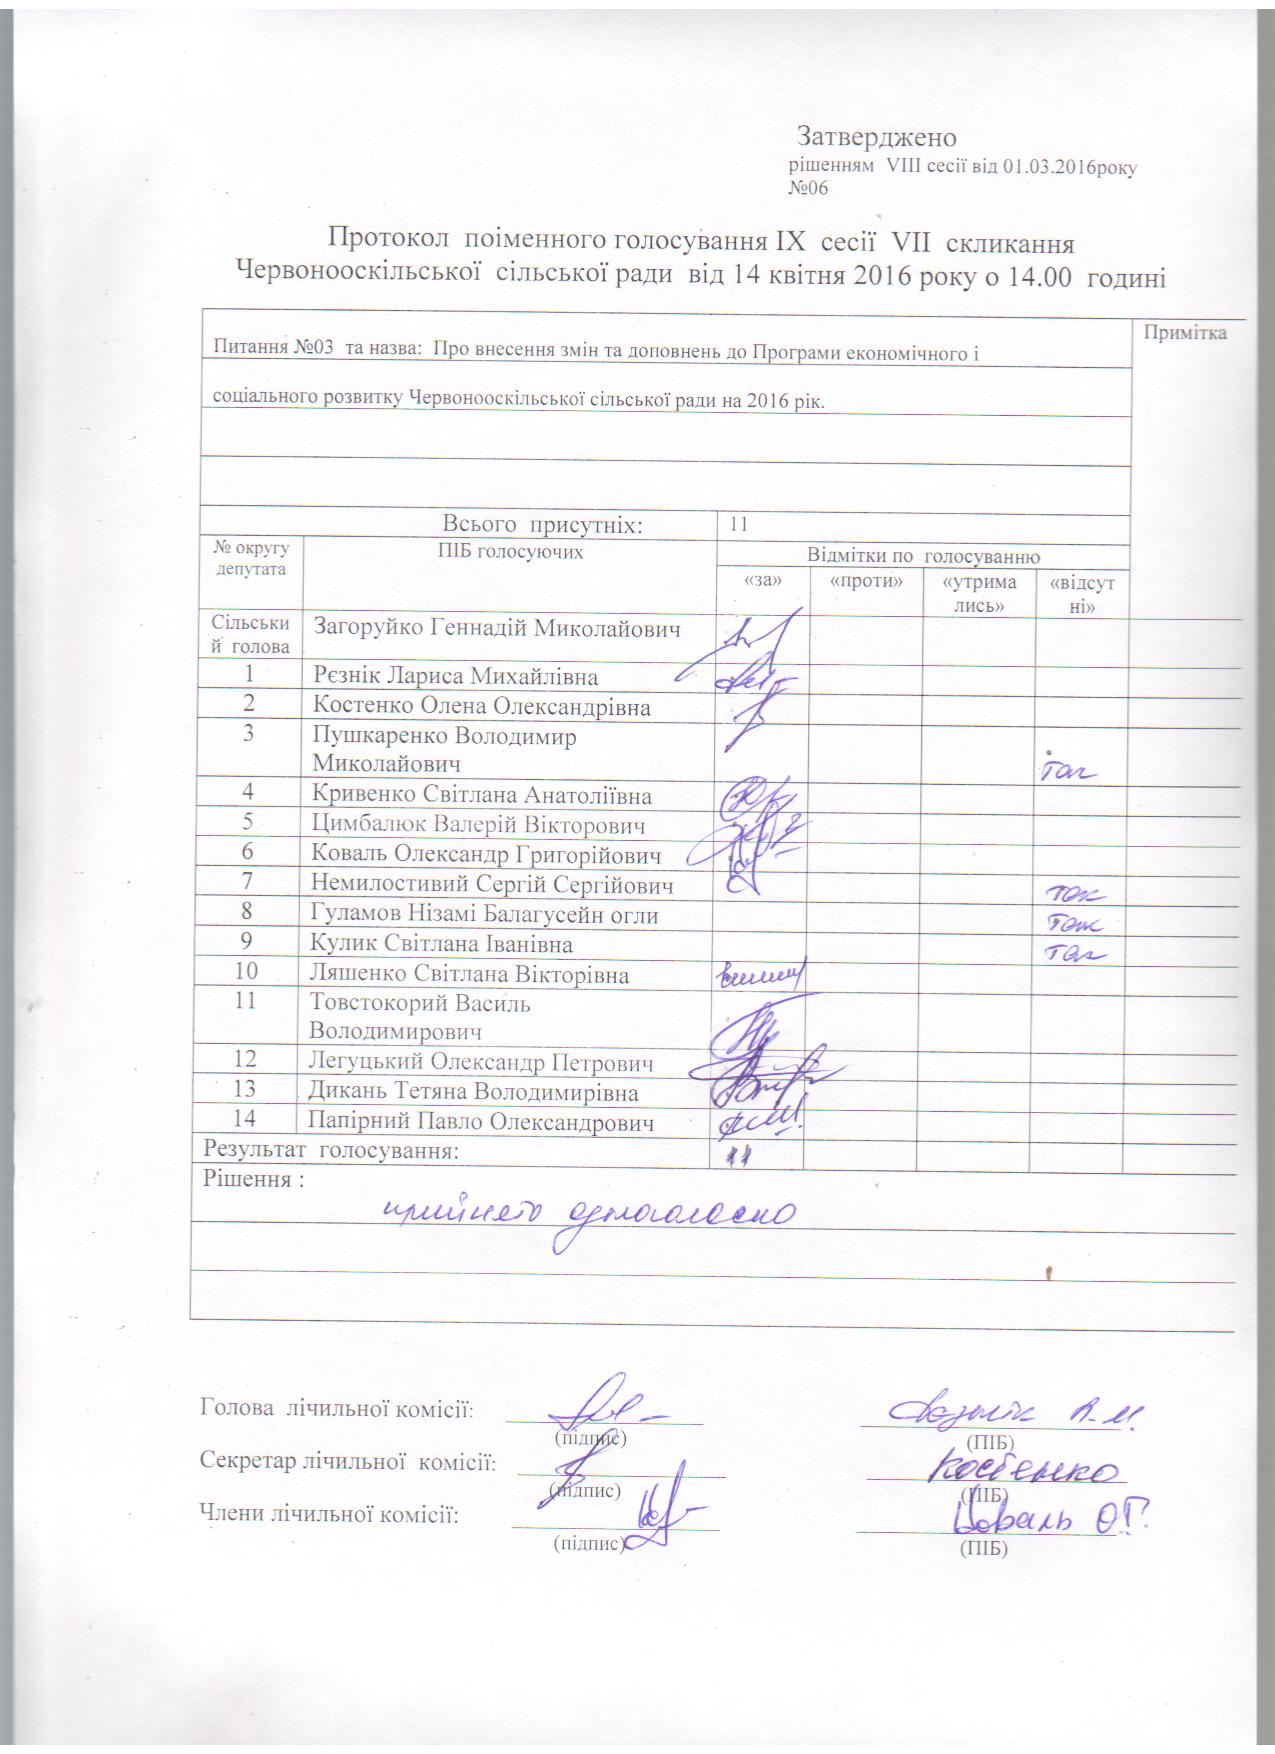 Затверджено
рішенням VIII сесії від 01.03.2016року
№06
Протокол поіменного голосування IX сесії VII скликання
Червонооскільської сільської ради від 14 квітня 2016 року о 14.00 годині
Питання №03 та назва: Про внесення змін та доповнень до Програми економічного і
Примітка
соціального розвитку Червонооскільської сільської ради на 2016 рік.
Всього присутніх: 11
№ округу депутата
ПІБ голосуючих
Відмітки по голосуванню
«за» «проти» «утрима лись» «відсут ні»
Сільськи Загоруйко Геннадій Миколайович
й голова
1 Рєзнік Лариса Михайлівна
2 Костенко Олена Олександрівна
3 Пушкаренко Володимир
Миколайович так
4 Кривенко Світлана Анатоліївна
5 Цимбалюк Валерій Вікторович
6 Коваль Олександр Григорійович
7 Немилостивий Сергій Сергійович так
8 Гуламов Нізамі Балагусейн огли так
9 Кулик Світлана Іванівна так
10 Ляшенко Світлана Вікторівна
11 Товстокорий Василь
Володимирович
12 Легуцький Олександр Петрович
13 Дикань Тетяна Володимирівна
14 Папірний Павло Олександрович
Результат голосування: 11
Рішення :
прийнято одноголосно
Голова лічильної комісії: Рєзнік Л.М.
(підпис) (ПІБ)
Секретар лічильної комісії: Костенко
(підпис) (ПІБ)
Члени лічильної комісії: Коваль О.Г.
(підпис) (ПІБ)